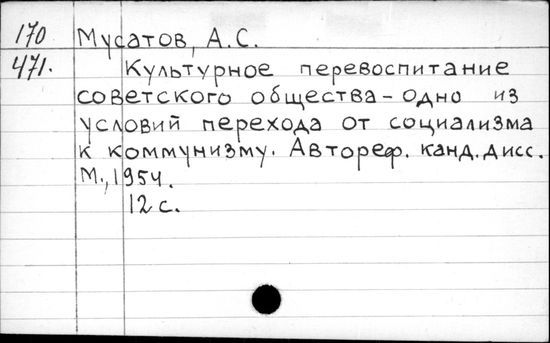 170 Мусатов, А.С.
471. Культурное перевоспитание
советского общества – одно из
условий перехода от социализма
к коммунизму. Автореф. канд. дисс.
М., 1954.
12 с.